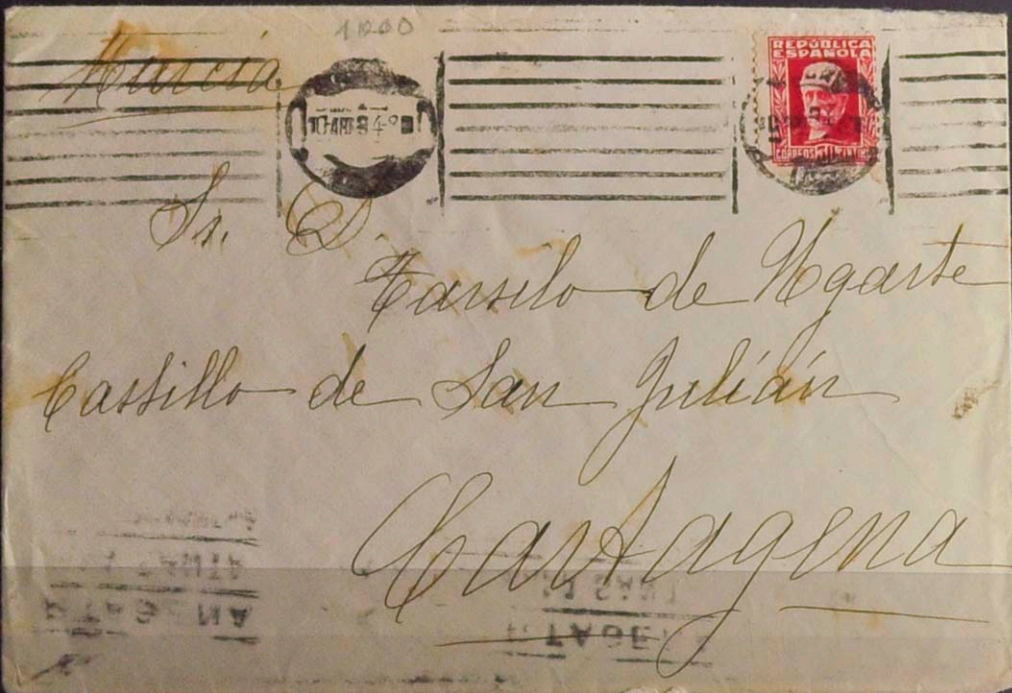 1200
Murcia
REPÚBLICA
ESPAÑOLA
CORREOS
Sr. D.
Tarsilo de Ugarte
Castillo de San Julián
Cartagena